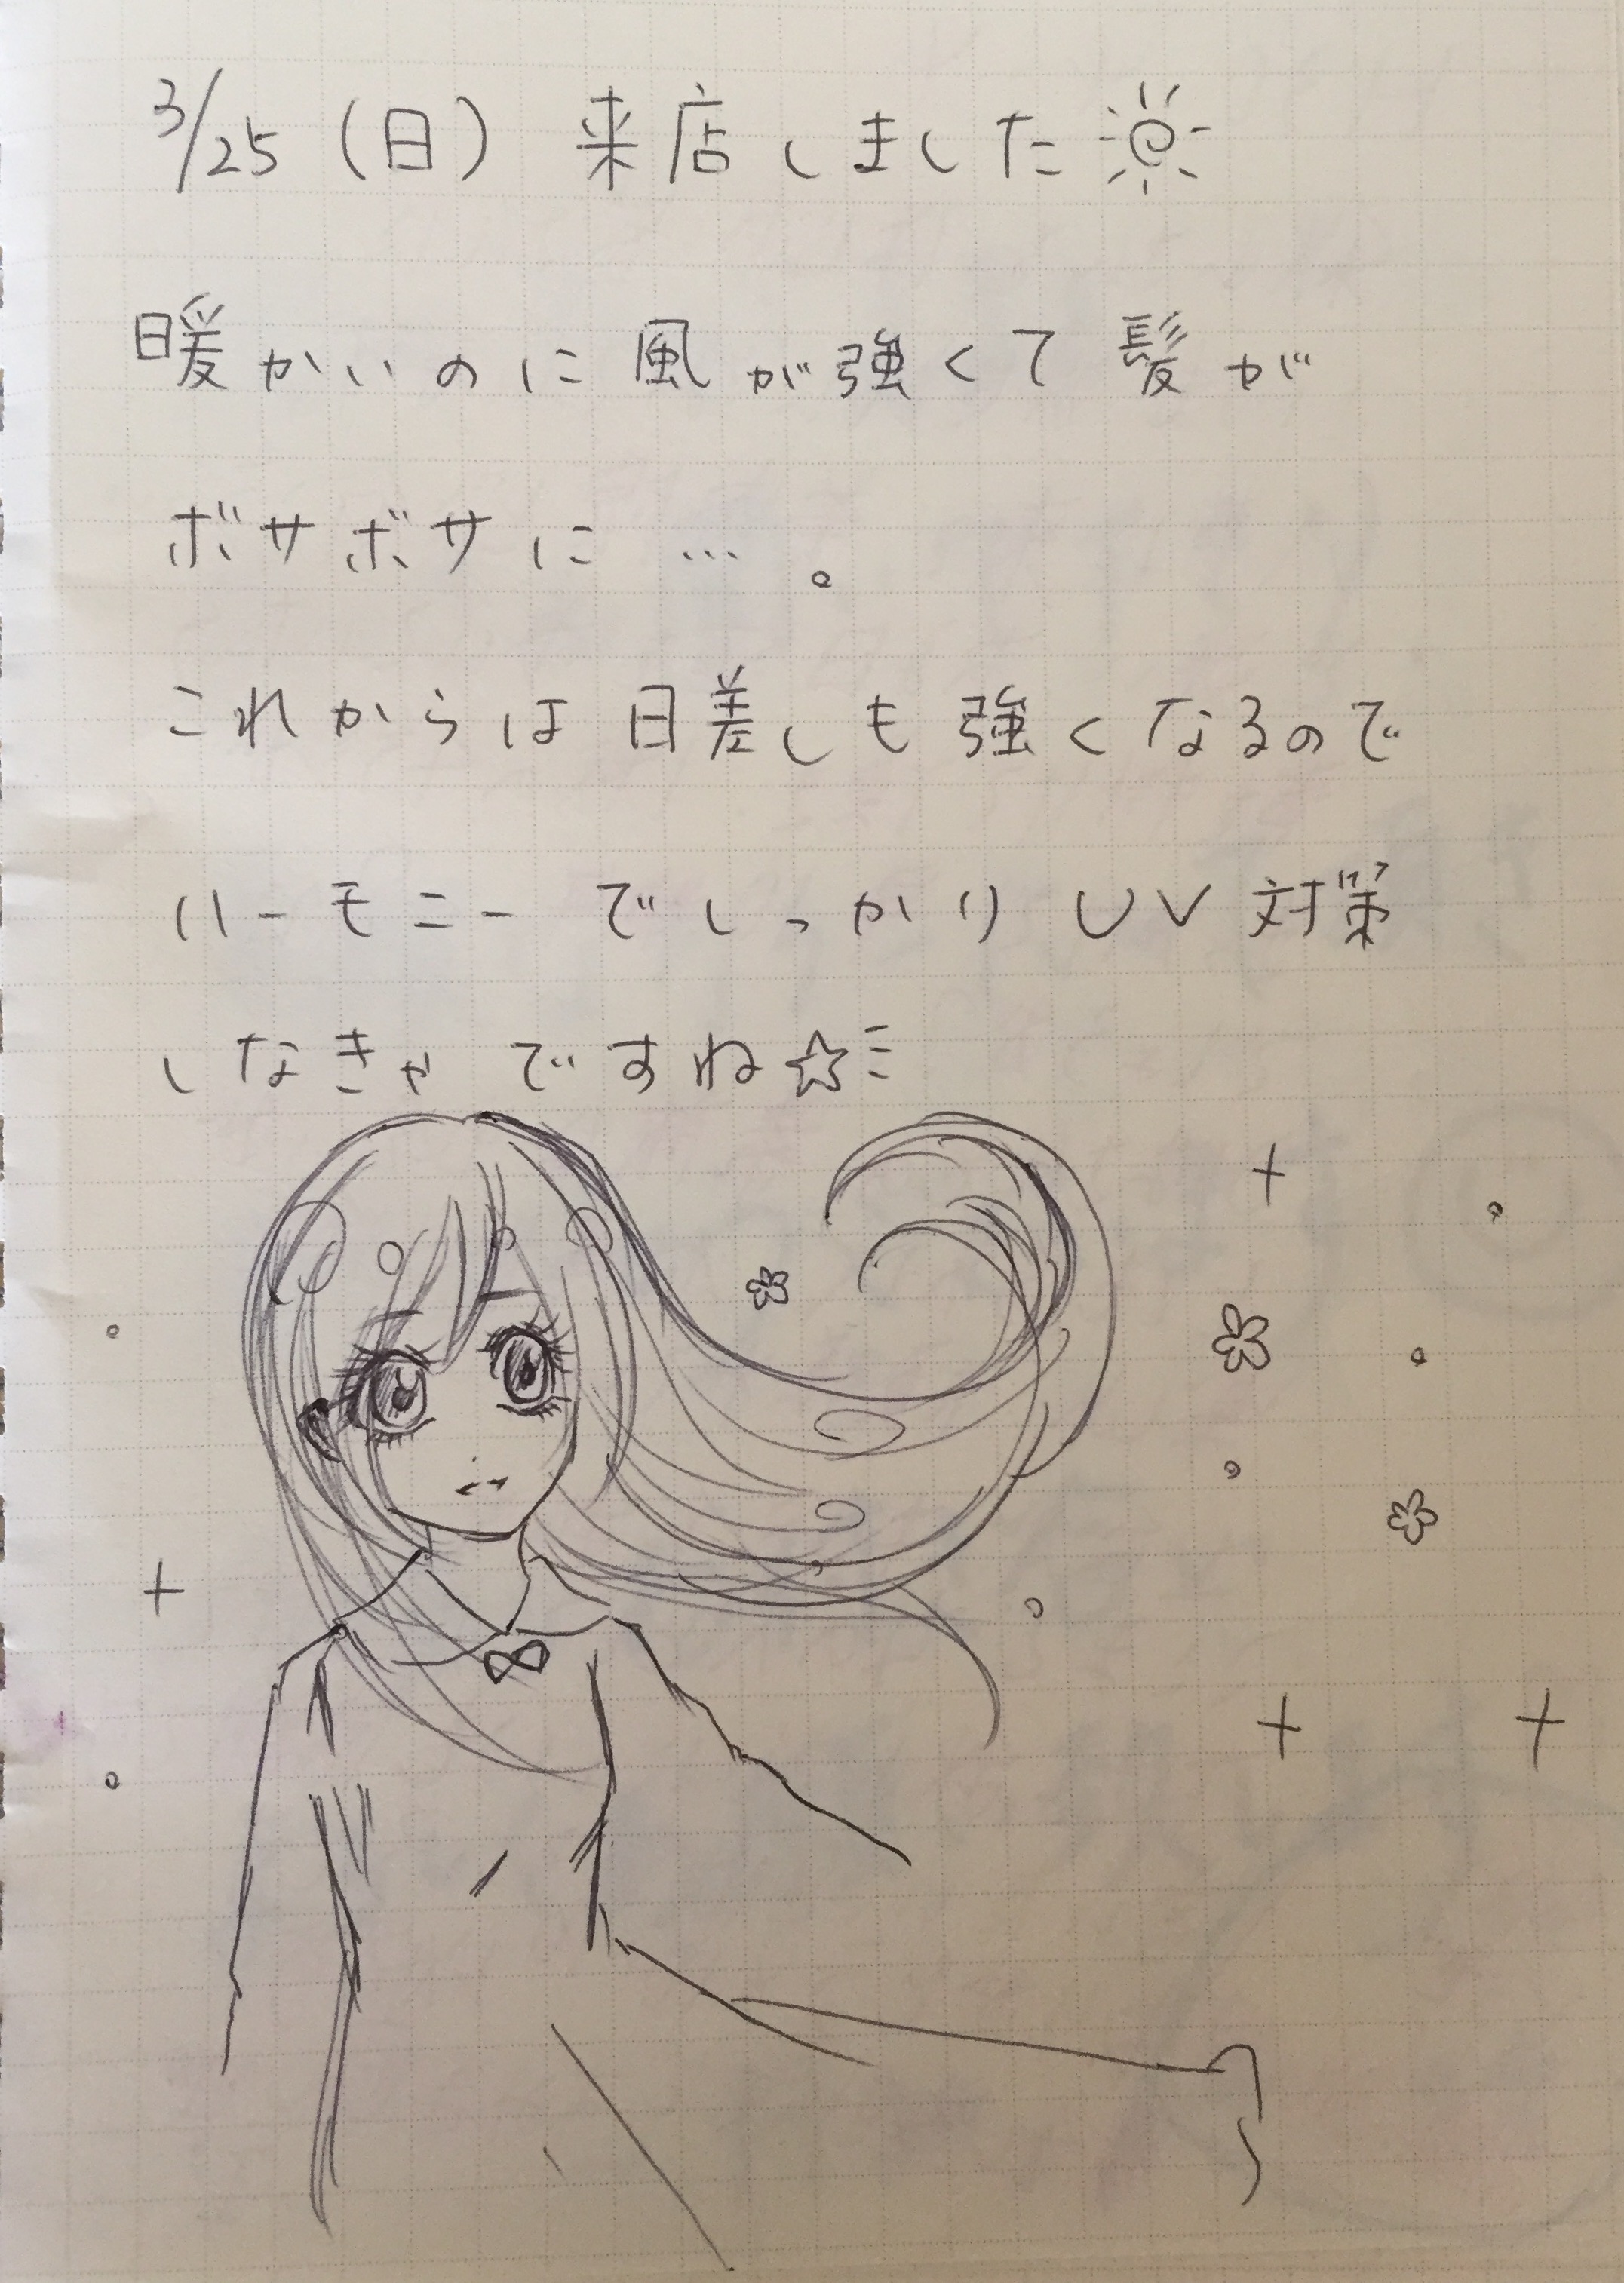 3/25(日) 来店しました☀
暖かいのに風が強くて髪が
ボサボサに…。
これからは日差しも強くなるので
ハーモニーでしっかりUV対策
しなきゃですね☆ミ